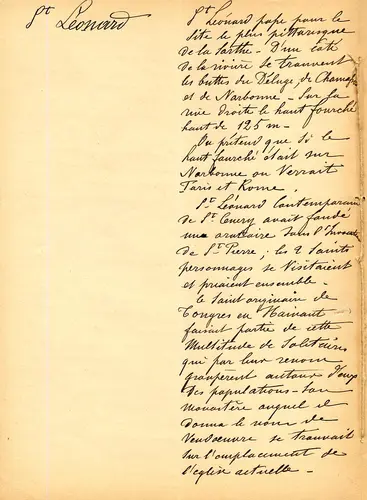 St Leonard
St Léonard passe pour le
site le plus pittoresque
de la Sarthe - D'un côté
de la rivière se trouvent
les buttes du Déluge de Champ
et de Narbonne - Sur la
rive droite le haut fourché
haut de 125 m -
On prétend que si le
haut fourché était sur
Narbonne on verrait
Paris et Rome.
St Léonard Contemporain
de St Cenery avait fondé
un oratoire sous l'Invocat
de St Pierre ; les 2 Saints
personnages se visitaient
et priaient ensemble -
le Saint originaire de
Tongres en Hainaut
faisait partie de cette
Multitude de Solitaires
qui par leur renom
groupèrent autour d'eux
des populations - Son
monastère auquel il
donna le nom de
Vendoeuvre se trouvait
sur l'emplacement de
l'église actuelle -